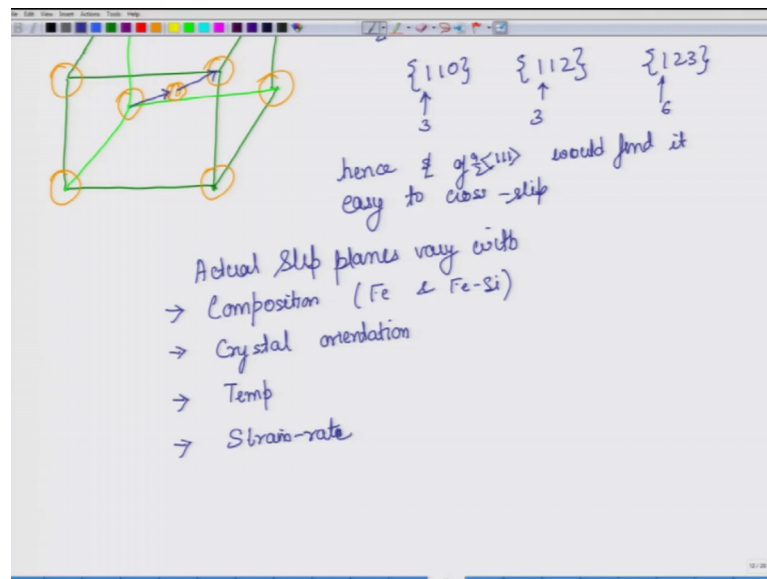 File Edit View Insert Actions Tools Help
{110} {112} {123}
3 3 6
hence of a/2<111> would find it
easy to cross-slip
Actual Slip planes vary with
→ Composition (Fe & Fe-Si)
→ Crystal orientation
→ Temp
→ Strain-rate